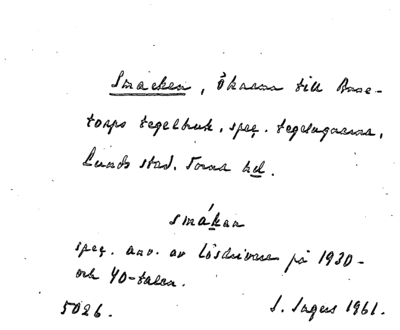 Smacken, Ökarna till Anne-
torps tegelbruk, speç. tegelugnarna,
Lunds stad. Torna hd.
smákan
speç. anv. av lösdrivare på 1930-
och 40-talen.
5026. S. Ingers 1961.